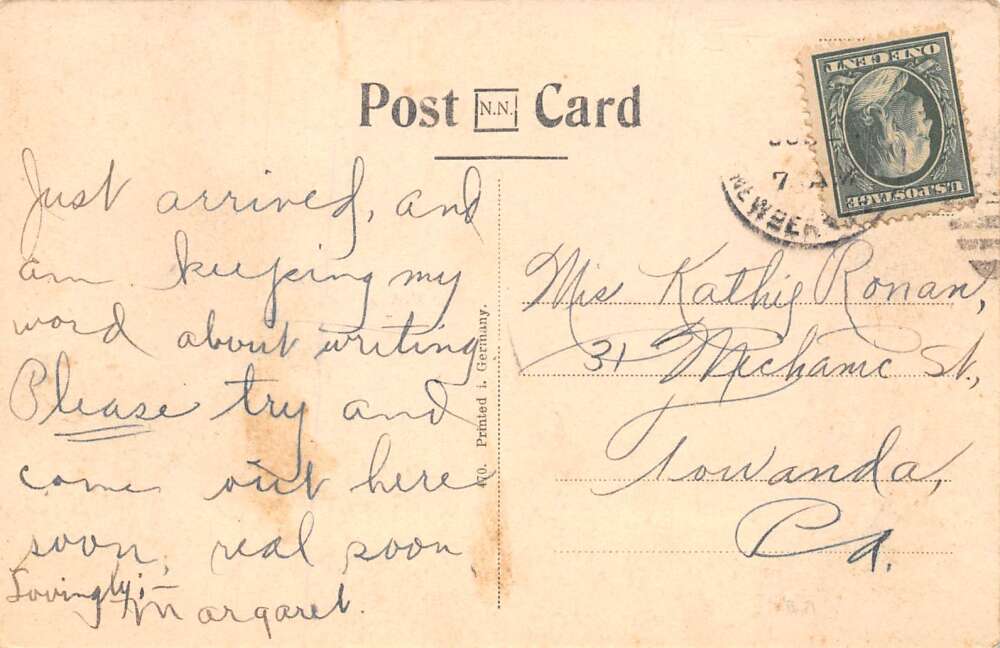 Post N.N. Card
Just arrived, and
am keeping my
word about writing
Please try and
come out here
soon, real soon
Lovingly;—
Margaret.
Printed i. Germany.
U.S. POSTAGE
ONE CENT
7
NEWBER
Mis Kathie Ronan,
31 Mechanic St.,
Towanda,
Pa.